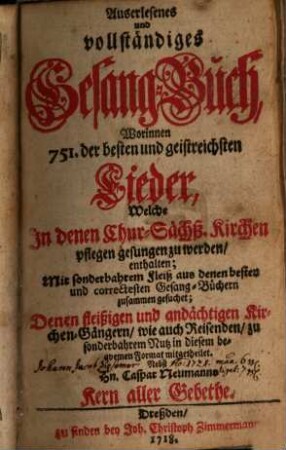 Auserlesenes
und
vollständiges
Gesang-Buch,
Worinnen
751. der besten und geistreichsten
Lieder,
Welche
In denen Chur-Sächß. Kirchen
pflegen gesungen zu werden/
enthalten;
Mit sonderbahrem Fleiß aus denen besten
und correctesten Gesang-Büchern
zusammen gesuchet;
Denen fleißigen und andächtigen Kir-
chen-Gängern/ wie auch Reisenden/ zu
sonderbahrem Nutz in diesem be-
qvemen Format mitgetheilet.
Nebst
Hn. Caspar Neumanns
Kern aller Gebethe.
Dreßden/
zu finden bey Joh. Christoph Zimmermann
1718.